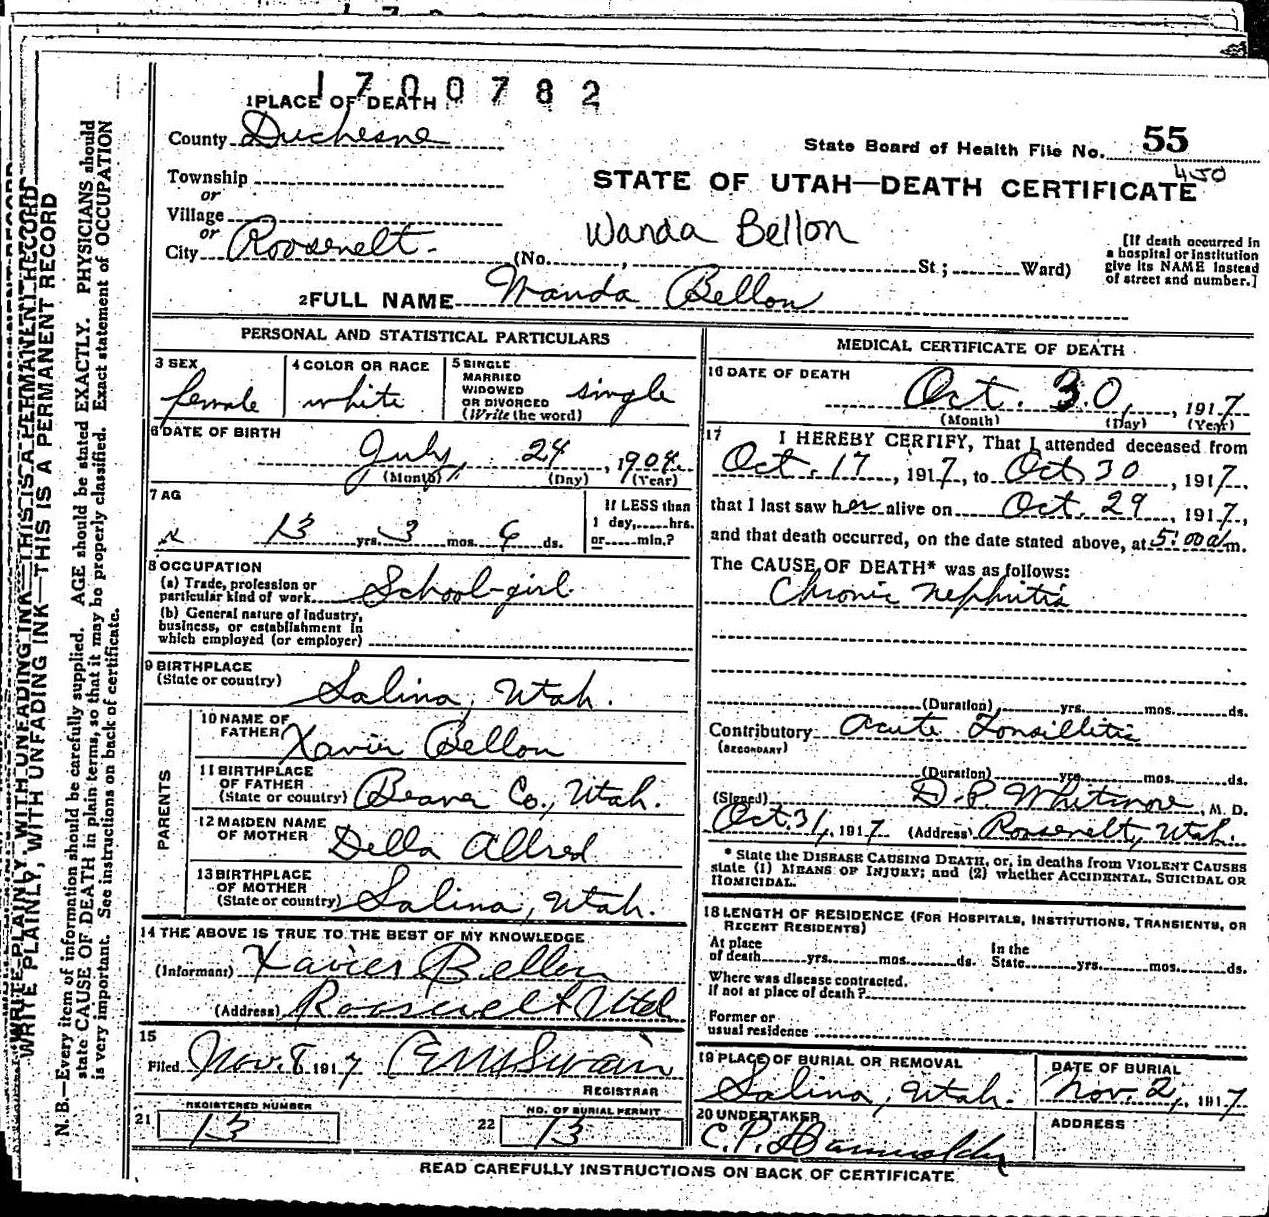 1700782
1 PLACE OF DEATH
County Duchesne
State Board of Health File No. 55
450
Township
or
Village
or
City Roosevelt.
STATE OF UTAH—DEATH CERTIFICATE
Wanda Bellon
(No. , St; Ward)
[If death occurred in
a hospital or institution
give its NAME instead
of street and number.]
2 FULL NAME Wanda Bellon
PERSONAL AND STATISTICAL PARTICULARS
3 SEX
female
4 COLOR OR RACE
white
5 SINGLE
MARRIED
WIDOWED
OR DIVORCED
(Write the word)
single
6 DATE OF BIRTH
July, 24, 1904
(Month) (Day) (Year)
7 AG
13 yrs. 3 mos. 6 ds.
If LESS than
1 day, hrs.
or min.?
8 OCCUPATION
(a) Trade, profession or
particular kind of work School-girl
(b) General nature of industry,
business, or establishment in
which employed (or employer)
9 BIRTHPLACE
(State or country)
Salina, Utah.
PARENTS
10 NAME OF
FATHER Xavier Bellon
11 BIRTHPLACE
OF FATHER
(State or country) Beaver Co., Utah.
12 MAIDEN NAME
OF MOTHER Della Allred
13 BIRTHPLACE
OF MOTHER
(State or country) Salina, Utah.
14 THE ABOVE IS TRUE TO THE BEST OF MY KNOWLEDGE
(Informant) Xavier Bellon
(Address) Roosevelt Utah
15
Filed Nov. 8 1917
REGISTRAR
21 REGISTERED NUMBER
13
22 NO. OF BURIAL PERMIT
13
MEDICAL CERTIFICATE OF DEATH
16 DATE OF DEATH
Oct. 30, 1917
(Month) (Day) (Year)
17 I HEREBY CERTIFY, That I attended deceased from
Oct. 17, 1917, to Oct. 30, 1917,
that I last saw her alive on Oct. 29, 1917,
and that death occurred, on the date stated above, at 5:00 a m.
The CAUSE OF DEATH* was as follows:
Chronic Nephritis
(Duration) yrs. mos. ds.
Contributory Acute Tonsillitis
(SECONDARY)
(Duration) yrs. mos. ds.
(Signed) D. P. Whitmore, M. D.
Oct. 31, 1917 (Address) Roosevelt, Utah.
* State the DISEASE CAUSING DEATH, or, in deaths from VIOLENT CAUSES
state (1) MEANS OF INJURY; and (2) whether ACCIDENTAL, SUICIDAL OR
HOMICIDAL.
18 LENGTH OF RESIDENCE (FOR HOSPITALS, INSTITUTIONS, TRANSIENTS, OR
RECENT RESIDENTS)
At place
of death yrs. mos. ds.
In the
State yrs. mos. ds.
Where was disease contracted,
If not at place of death?
Former or
usual residence
19 PLACE OF BURIAL OR REMOVAL
Salina, Utah.
DATE OF BURIAL
Nov. 2, 1917
20 UNDERTAKER
C. P.
ADDRESS
READ CAREFULLY INSTRUCTIONS ON BACK OF CERTIFICATE
WRITE PLAINLY, WITH UNFADING INK—THIS IS A PERMANENT RECORD
WRITE PLAINLY, WITH UNFADING INK—THIS IS A PERMANENT RECORD
N. B.—Every item of information should be carefully supplied. AGE should be stated EXACTLY. PHYSICIANS should
state CAUSE OF DEATH in plain terms, so that it may be properly classified. Exact statement of OCCUPATION
is very important. See instructions on back of certificate.